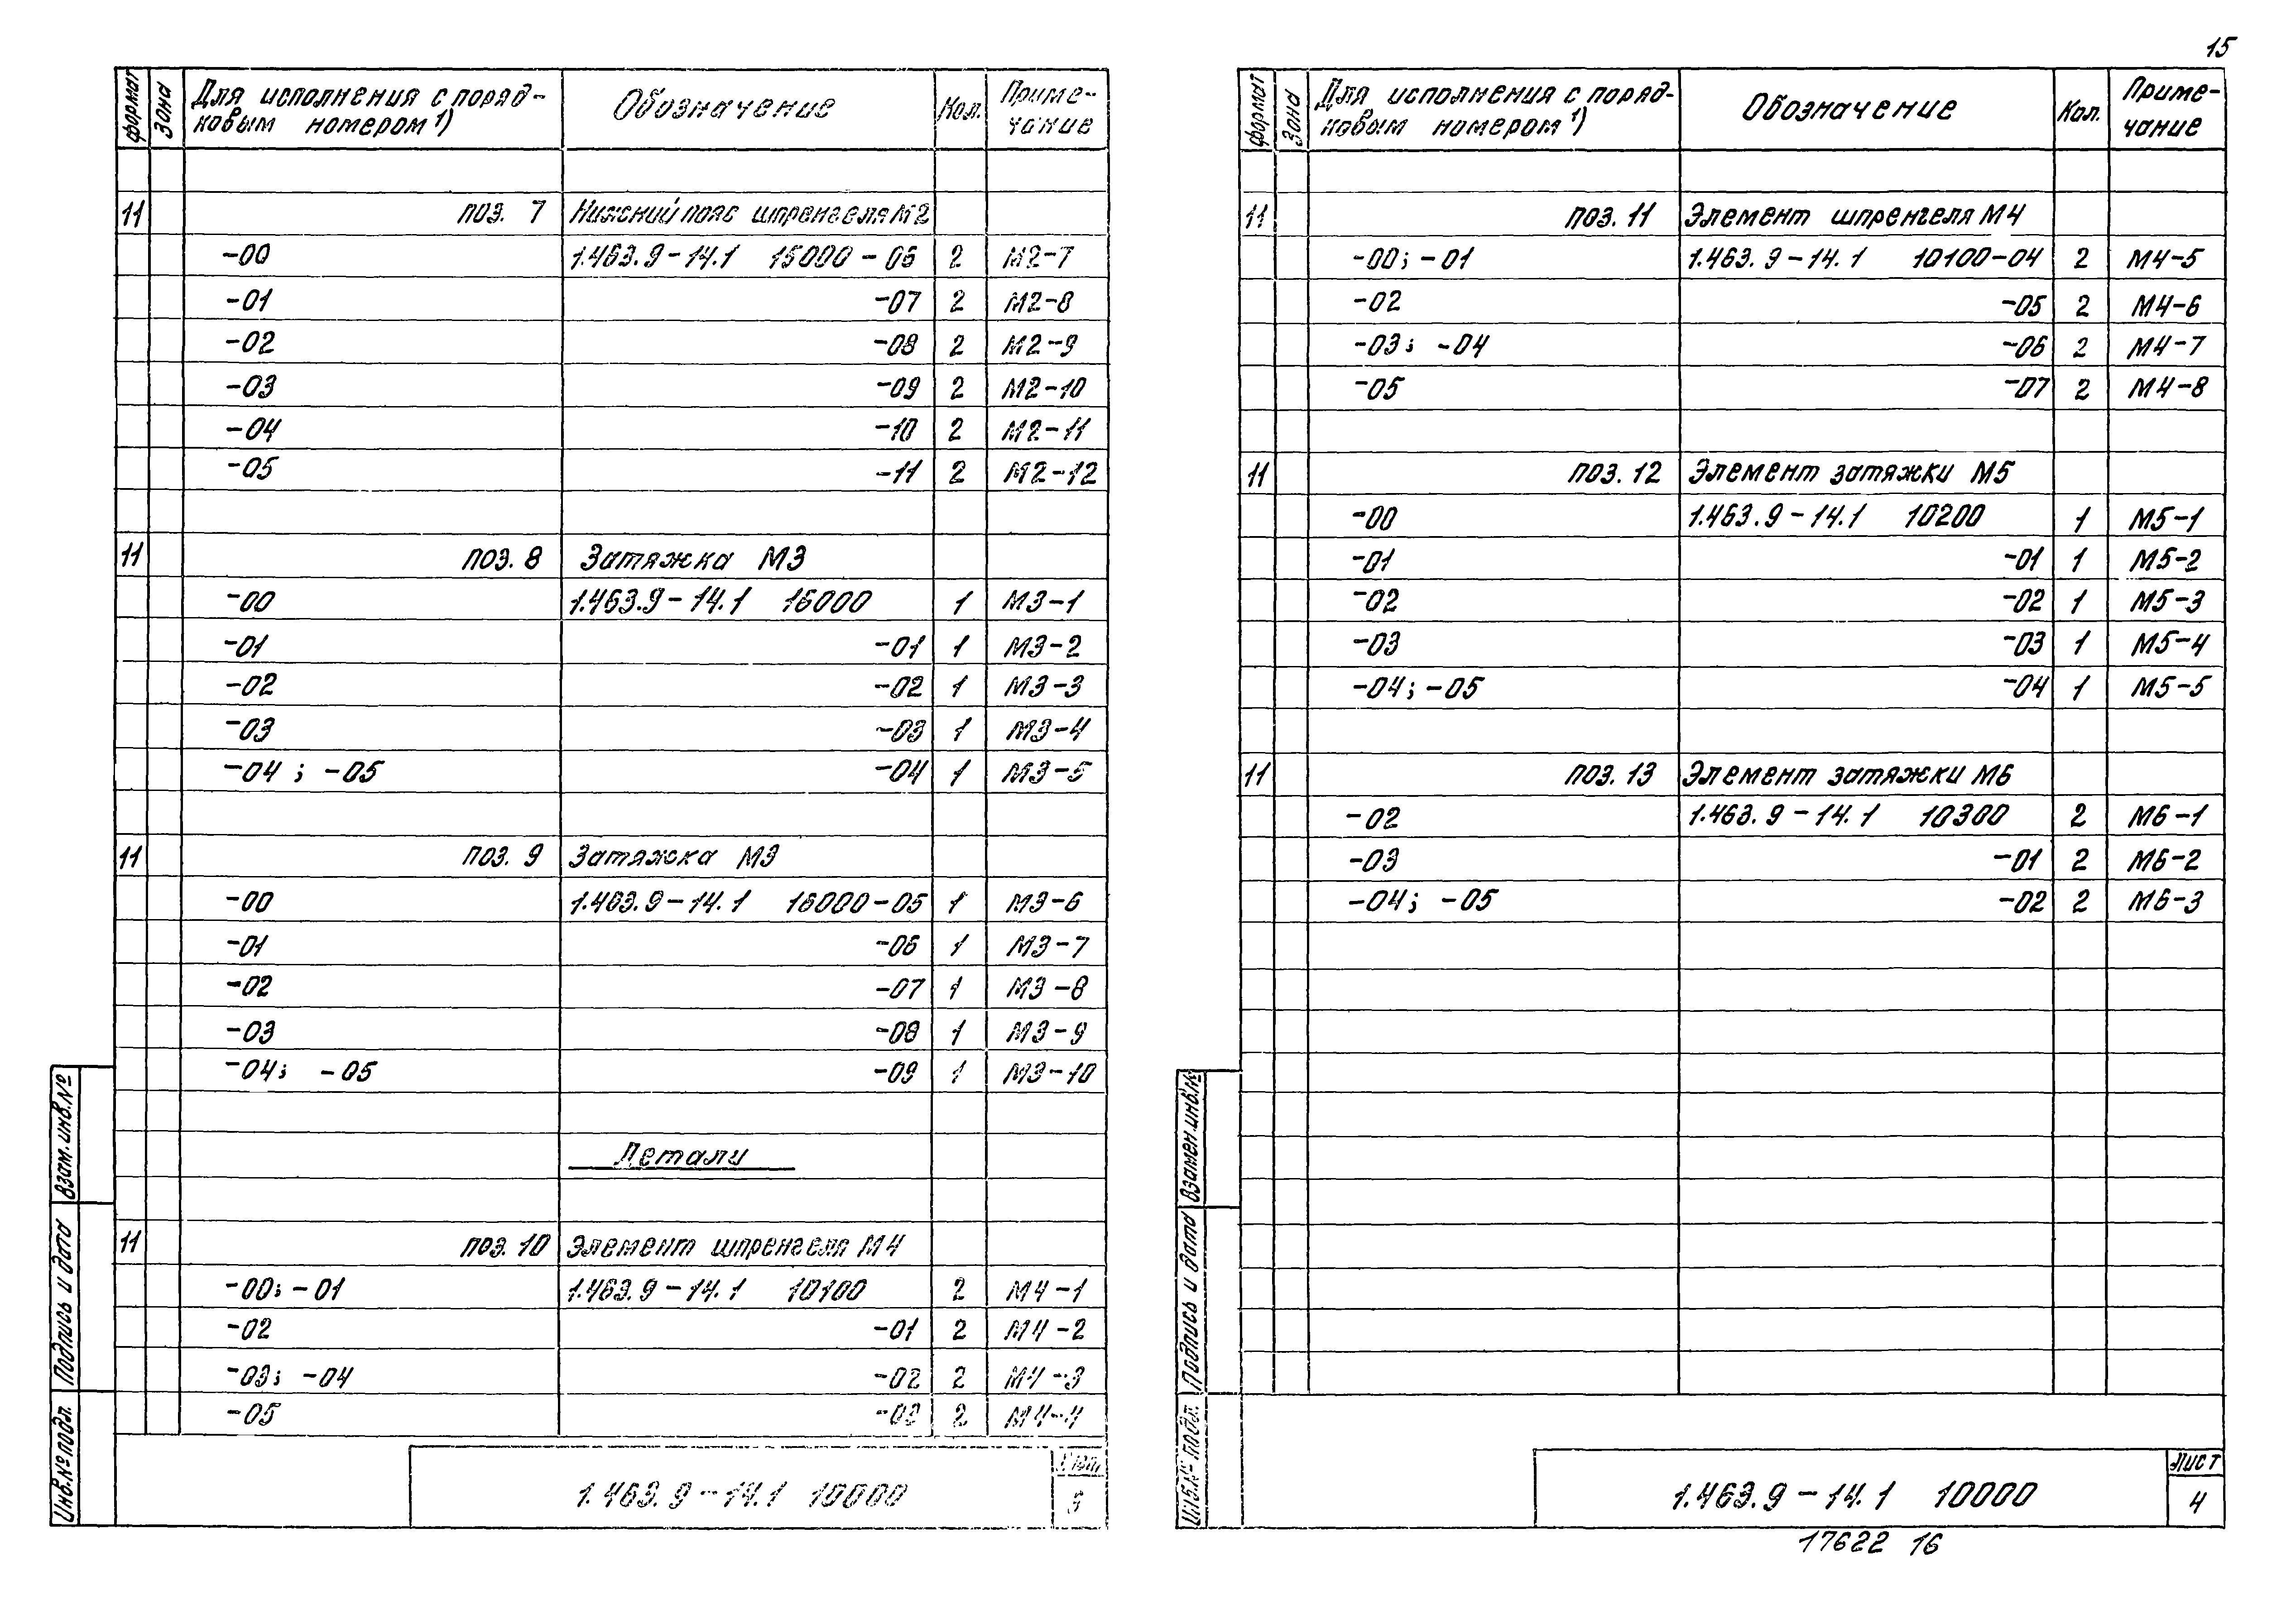 15
формат Зона Для исполнения с поряд- Обозначение Кол. Приме-
ковым номером 1) чание
11 поз. 7 Нижний пояс шпренгеля М2
-00 1.463.9-14.1 15000-06 2 М2-7
-01 -07 2 М2-8
-02 -08 2 М2-9
-03 -09 2 М2-10
-04 -10 2 М2-11
-05 -11 2 М2-12
11 поз. 8 Затяжка М3
-00 1.463.9-14.1 16000 1 М3-1
-01 -01 1 М3-2
-02 -02 1 М3-3
-03 -03 1 М3-4
-04; -05 -04 1 М3-5
11 поз. 9 Затяжка М3
-00 1.463.9-14.1 16000-05 1 М3-6
-01 -06 1 М3-7
-02 -07 1 М3-8
-03 -08 1 М3-9
-04; -05 -09 1 М3-10
Детали
11 поз. 10 Элемент шпренгеля М4
-00; -01 1.463.9-14.1 10100 2 М4-1
-02 -01 2 М4-2
-03; -04 -02 2 М4-3
-05 -03 2 М4-4
Взам. инв.№
Подпись и дата
Инв.№ подл.
1.463.9-14.1 10000
Лист
3
формат Зона Для исполнения с поряд- Обозначение Кол. Приме-
ковым номером 1) чание
11 поз. 11 Элемент шпренгеля М4
-00; -01 1.463.9-14.1 10100-04 2 М4-5
-02 -05 2 М4-6
-03; -04 -06 2 М4-7
-05 -07 2 М4-8
11 поз. 12 Элемент затяжки М5
-00 1.463.9-14.1 10200 1 М5-1
-01 -01 1 М5-2
-02 -02 1 М5-3
-03 -03 1 М5-4
-04; -05 -04 1 М5-5
11 поз. 13 Элемент затяжки М6
-02 1.463.9-14.1 10300 2 М6-1
-03 -01 2 М6-2
-04; -05 -02 2 М6-3
Взамен инв.№
Подпись и дата
Инв.№ подл.
1.463.9-14.1 10000
Лист
4
17622 16